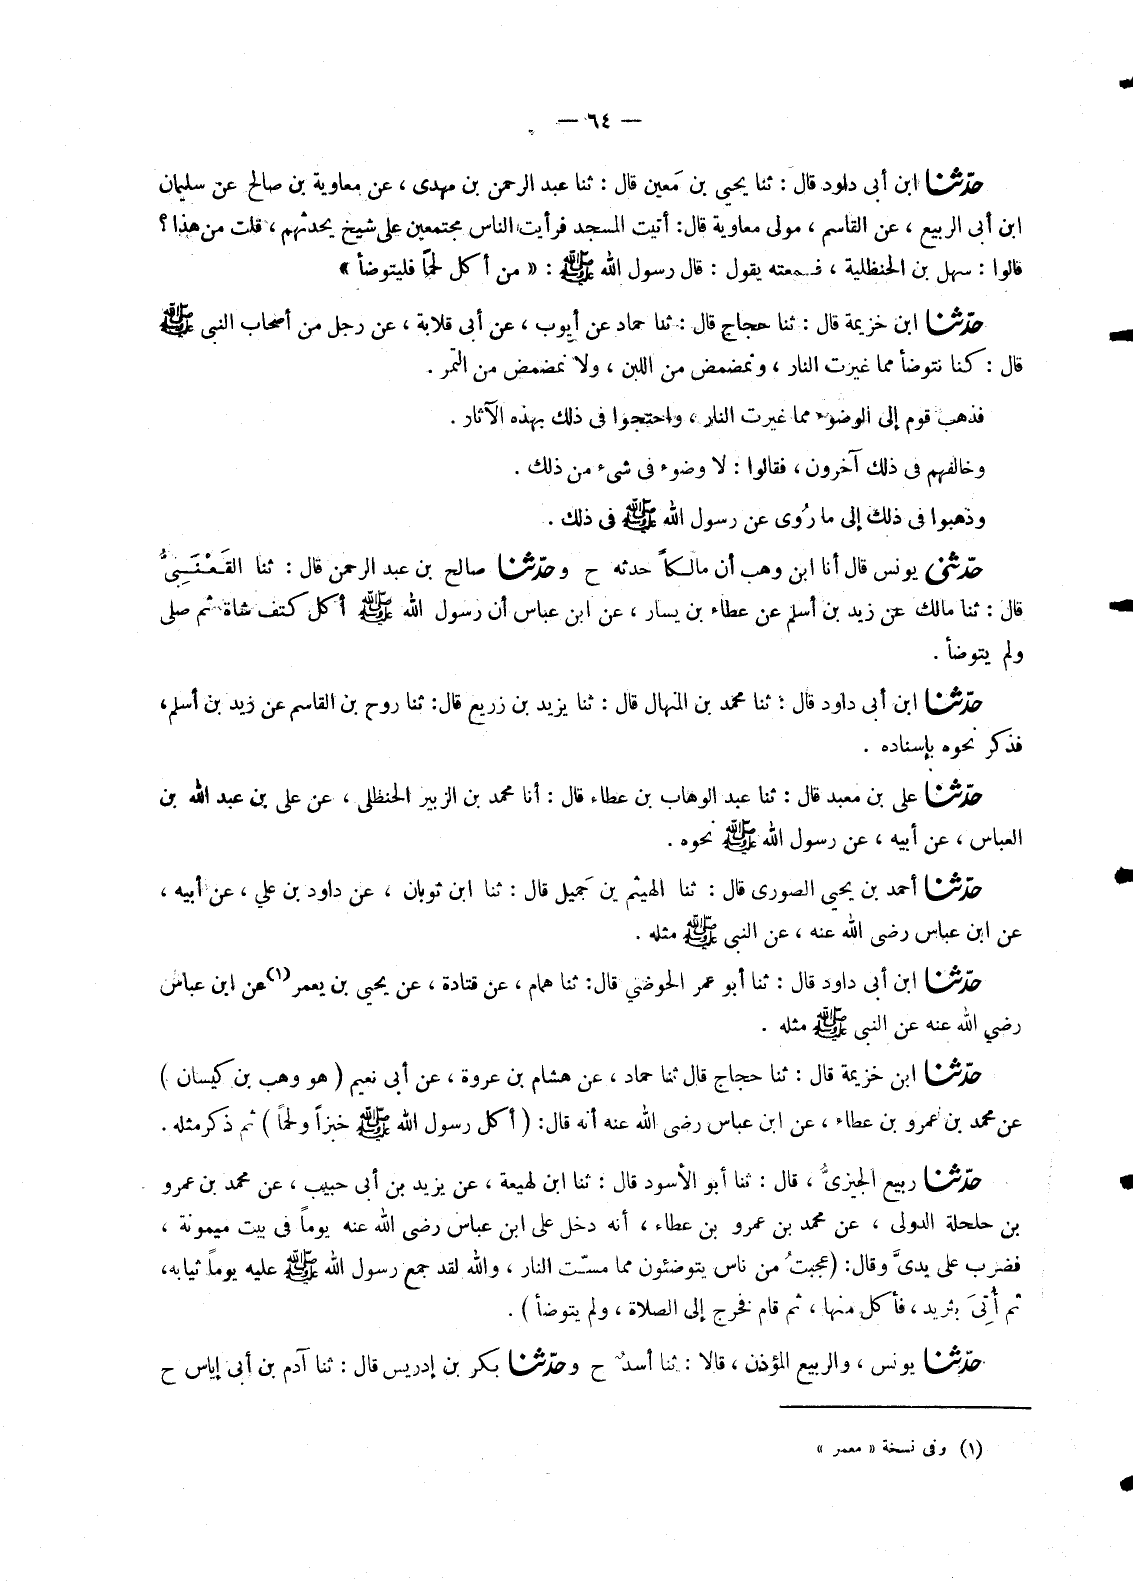 — ٦٤ —
حدّثنا ابن أبى داود قال : ثنا يحيى بن مَعين قال : ثنا عبد الرحمن بن مهدى ، عن معاوية بن صالح عن سليمان
ابن أبى الربيع ، عن القاسم ، مولى معاوية قال: أتيت المسجد فرأيت الناس مجتمعين على شيخ يحدثهم ، قلت من هذا ؟
قالوا : سهل بن الحنظلية ، فسمعته يقول : قال رسول الله ﷺ : « من أكل لحمًا فليتوضأ »
حدّثنا ابن خزيمة قال : ثنا حجاج قال : ثنا حماد عن أيوب ، عن أبى قلابة ، عن رجل من أصحاب النبى ﷺ
قال : كنا نتوضأ مما غيرت النار ، ونمضمض من اللبن ، ولا نمضمض من التمر .
فذهب قوم إلى الوضوء مما غيرت النار ، واحتجوا فى ذلك بهذه الآثار .
وخالفهم فى ذلك آخرون ، فقالوا : لا وضوء فى شىء من ذلك .
وذهبوا فى ذلك إلى ما رُوى عن رسول الله ﷺ فى ذلك .
حدّثنى يونس قال أنا ابن وهب أن مالكاً حدثه ح وحدّثنا صالح بن عبد الرحمن قال : ثنا القَعْنَبِىُّ
قال : ثنا مالك عن زيد بن أسلم عن عطاء بن يسار ، عن ابن عباس أن رسول الله ﷺ أكل كتف شاة ثم صلى
ولم يتوضأ .
حدّثنا ابن أبى داود قال : ثنا محمد بن المنهال قال : ثنا يزيد بن زريع قال: ثنا روح بن القاسم عن زيد بن أسلم،
فذكر نحوه بإسناده .
حدّثنا على بن معبد قال : ثنا عبد الوهاب بن عطاء قال : أنا محمد بن الزبير الحنظلى ، عن على بن عبد الله بن
العباس ، عن أبيه ، عن رسول الله ﷺ نحوه .
حدّثنا أحمد بن يحيى الصورى قال : ثنا الهيثم بن جَميل قال : ثنا ابن ثوبان ، عن داود بن علي ، عن أبيه ،
عن ابن عباس رضى الله عنه ، عن النبى ﷺ مثله .
حدّثنا ابن أبى داود قال : ثنا أبو عمر الحوضي قال: ثنا همام ، عن قتادة ، عن يحيى بن يعمر(١) عن ابن عباس
رضي الله عنه عن النبى ﷺ مثله .
حدّثنا ابن خزيمة قال : ثنا حجاج قال ثنا حماد ، عن هشام بن عروة ، عن أبى نعيم ( هو وهب بن كيسان )
عن محمد بن عمرو بن عطاء ، عن ابن عباس رضى الله عنه أنه قال: ( أكل رسول الله ﷺ خبزاً ولحماً ) ثم ذكر مثله .
حدّثنا ربيع الجيزىُّ ، قال : ثنا أبو الأسود قال : ثنا ابن لهيعة ، عن يزيد بن أبى حبيب ، عن محمد بن عمرو
بن حلحلة الدولى ، عن محمد بن عمرو بن عطاء ، أنه دخل على ابن عباس رضى الله عنه يوماً فى بيت ميمونة ،
فضرب على يدىَّ وقال: (عجبتُ من ناس يتوضئون مما مسّت النار ، والله لقد جمع رسول الله ﷺ عليه يوماً ثيابه،
ثم أُتِىَ بثريد ، فأكل منها ، ثم قام فخرج إلى الصلاة ، ولم يتوضأ ) .
حدّثنا يونس ، والربيع المؤذن ، قالا : ثنا أسدٌ ح وحدّثنا بكر بن إدريس قال : ثنا آدم بن أبى إياس ح
(١) وفى نسخة « معمر »